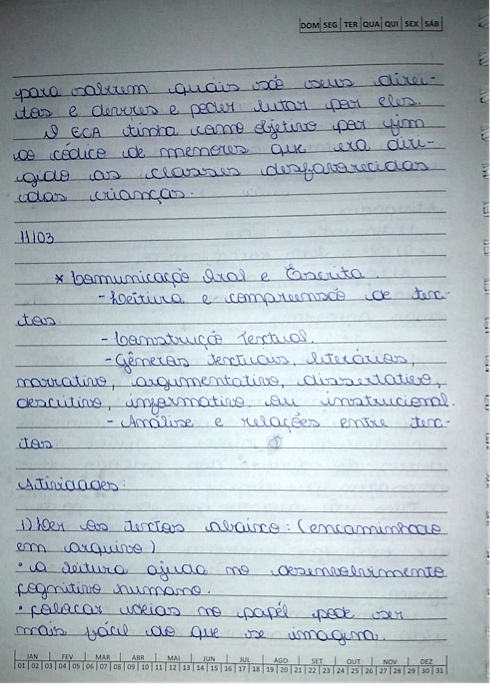 DOM SEG TER QUA QUI SEX SÁB
para saberem quais são seus direi-
tos e deveres e poder lutar por eles.
O ECA tinha como objetivo por fim
ao códico de memores que era diri-
gido as classes desfavorecidas
das crianças.
11/03
* Comunicação Oral e Escrita
- Leitura e compreensão de tex-
tos
- Construção Textual.
- Gêneros textuais, literários,
narrativo, argumentativo, dissertativo,
descritivo, informativo, ou instrucional.
- Análise e relações entre tex-
tos
Atividades:
1) Ler os textos abaixo: (encaminhado
em arquivo)
• A leitura ajuda no desenvolvimento
cognitivo humano.
• Colocar ideias no papél pode ser
mais fácil do que se imagina.
JAN FEV MAR ABR MAI JUN JUL AGO SET OUT NOV DEZ
01 02 03 04 05 06 07 08 09 10 11 12 13 14 15 16 17 18 19 20 21 22 23 24 25 26 27 28 29 30 31